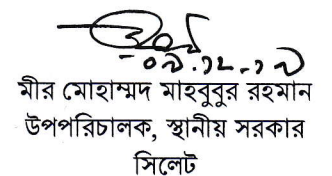 ০৯.১২.১৯
মীর মোহাম্মদ মাহবুবুর রহমান
উপপরিচালক, স্থানীয় সরকার
সিলেট